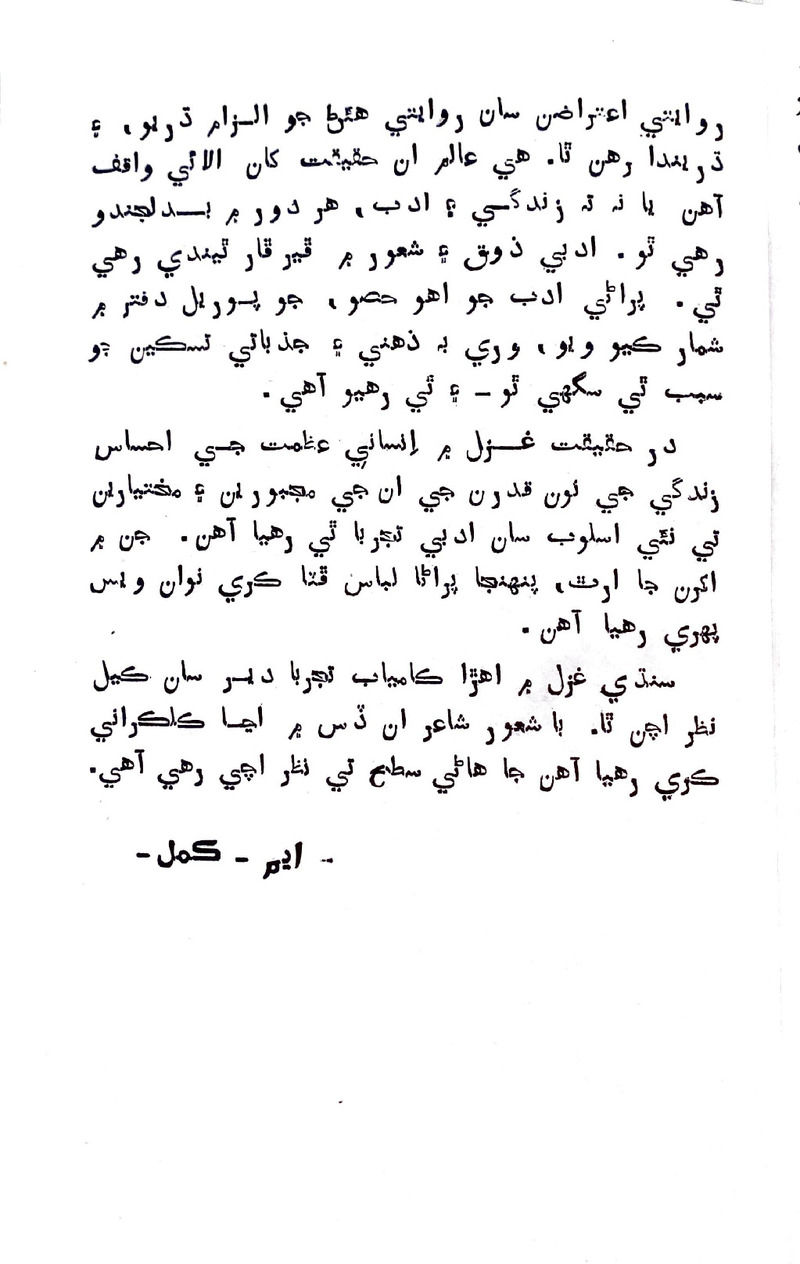 روايتي اعتراضن سان روايتي هئڻ جو الـزام ڌريو، ۽
ڌريندا رهن ٿا. هي عالم ان حقيقت کان الائي واقف
آهن يا نہ تہ زندگـي ۽ ادب، هر دور ۾ بـدلجندو
رهي ٿو. ادبي ذوق ۽ شعور ۾ ڦيرڦار ٿيندي رهي
ٿي. پراڻي ادب جو اهو حصو، جو پـوريل دفتر ۾
شمار ڪيو ويو، وري بہ ذهني ۽ جذباتي تسڪين جو
سبب ٿي سگهي ٿو ـ ۽ ٿي رهيو آهي.
در حقيقت غـزل ۾ اِنساني عظمت جـي احساس
زندگي جي نون قدرن جي ان جي مجبورين ۽ مختيارين
تي نئي اسلوب سان ادبي تجربا ٿي رهيا آهن. جن ۾
اکرن جا ارٿ، پنهنجا پراڻا لباس ڦٽا ڪري نوان ويس
پهري رهيا آهن.
سنڌي غزل ۾ اهڙا ڪامياب تجربا ديـر سان ڪيل
نظر اچن ٿا. باشعور شاعر ان ڏس ۾ اڃـا ڪلڪراني
ڪري رهيا آهن جا هاڻي سطح تي نظر اچي رهي آهي.
ـ ايم ـ ڪمل ـ